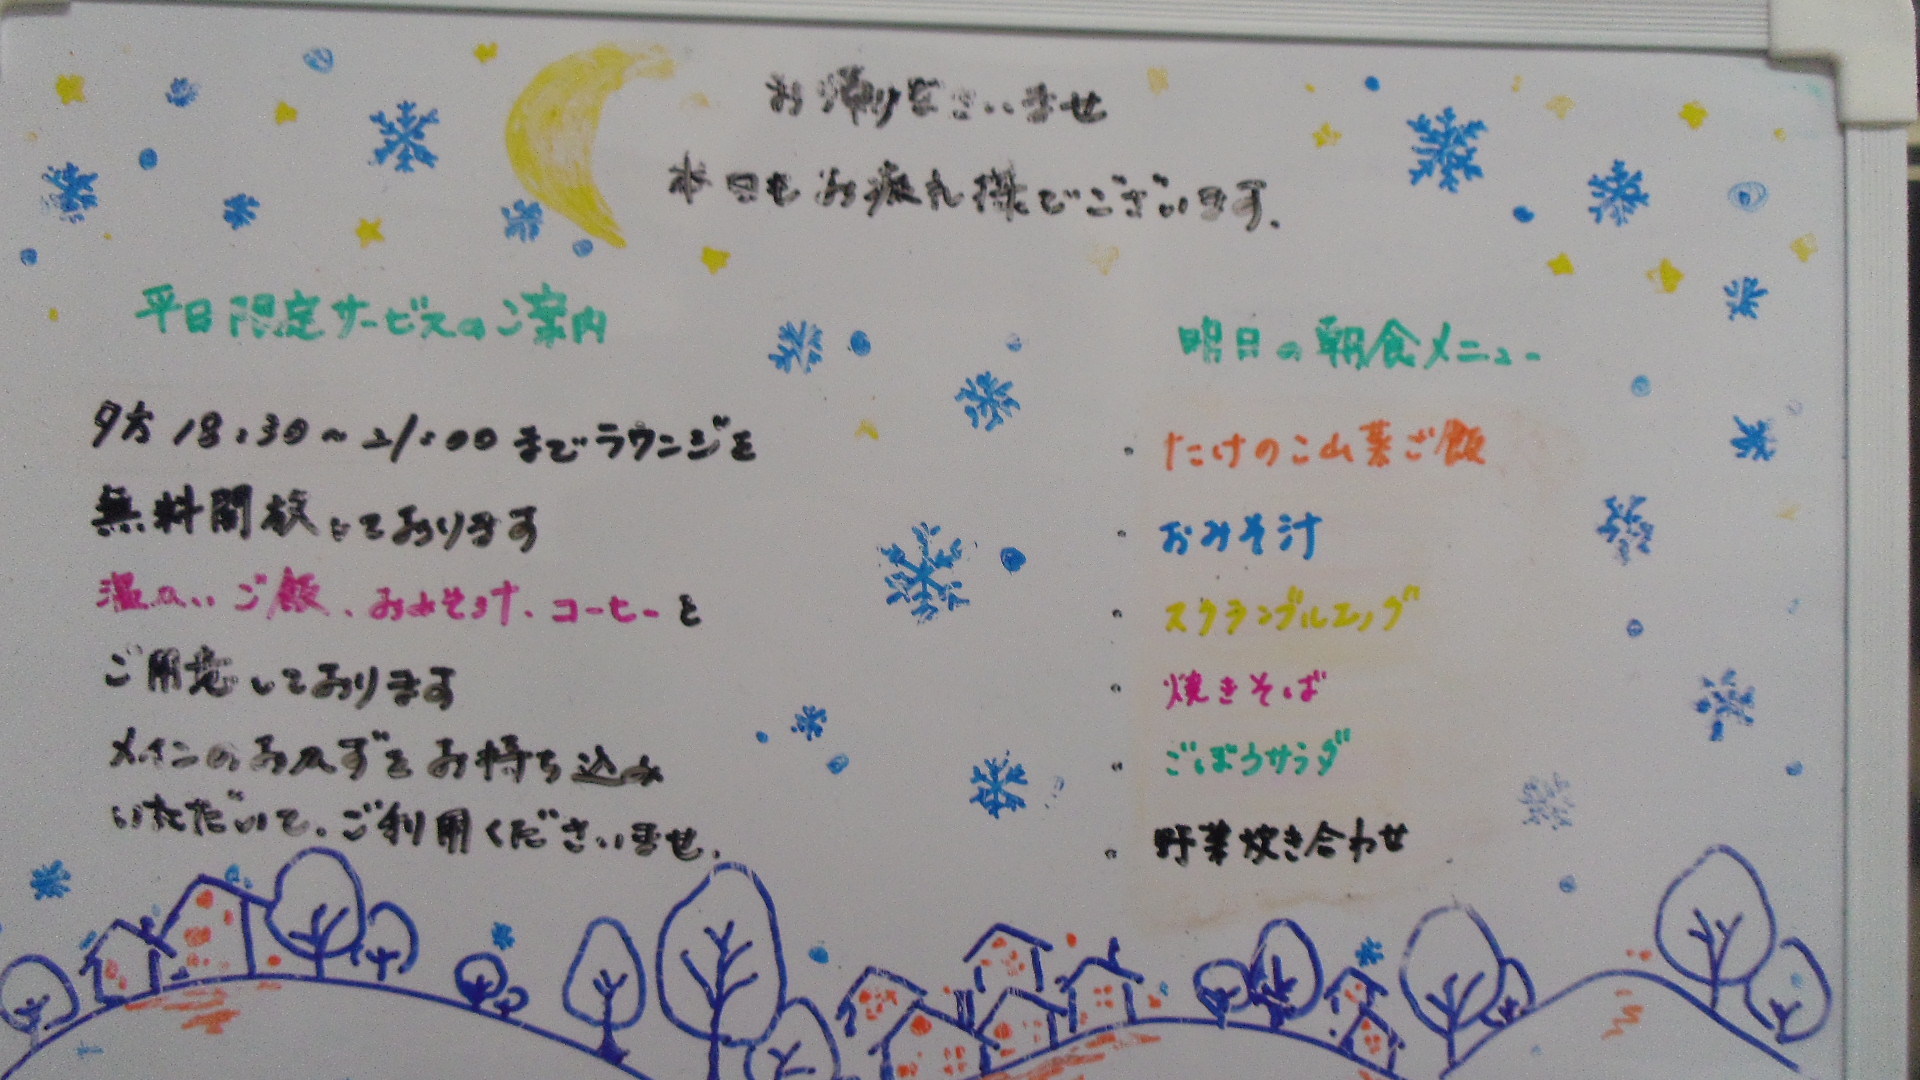 お帰りなさいませ
本日もお疲れ様でございます.
平日限定サービスのご案内
夕方 18:30～21:00までラウンジを
無料開放しております
温かいご飯、おみそ汁、コーヒーを
ご用意しております
メインのおかずをお持ち込み
いただいて、ご利用くださいませ.
明日の朝食メニュー
・たけのこ山菜ご飯
・おみそ汁
・スクランブルエッグ
・焼きそば
・ごぼうサラダ
・野菜炊き合わせ